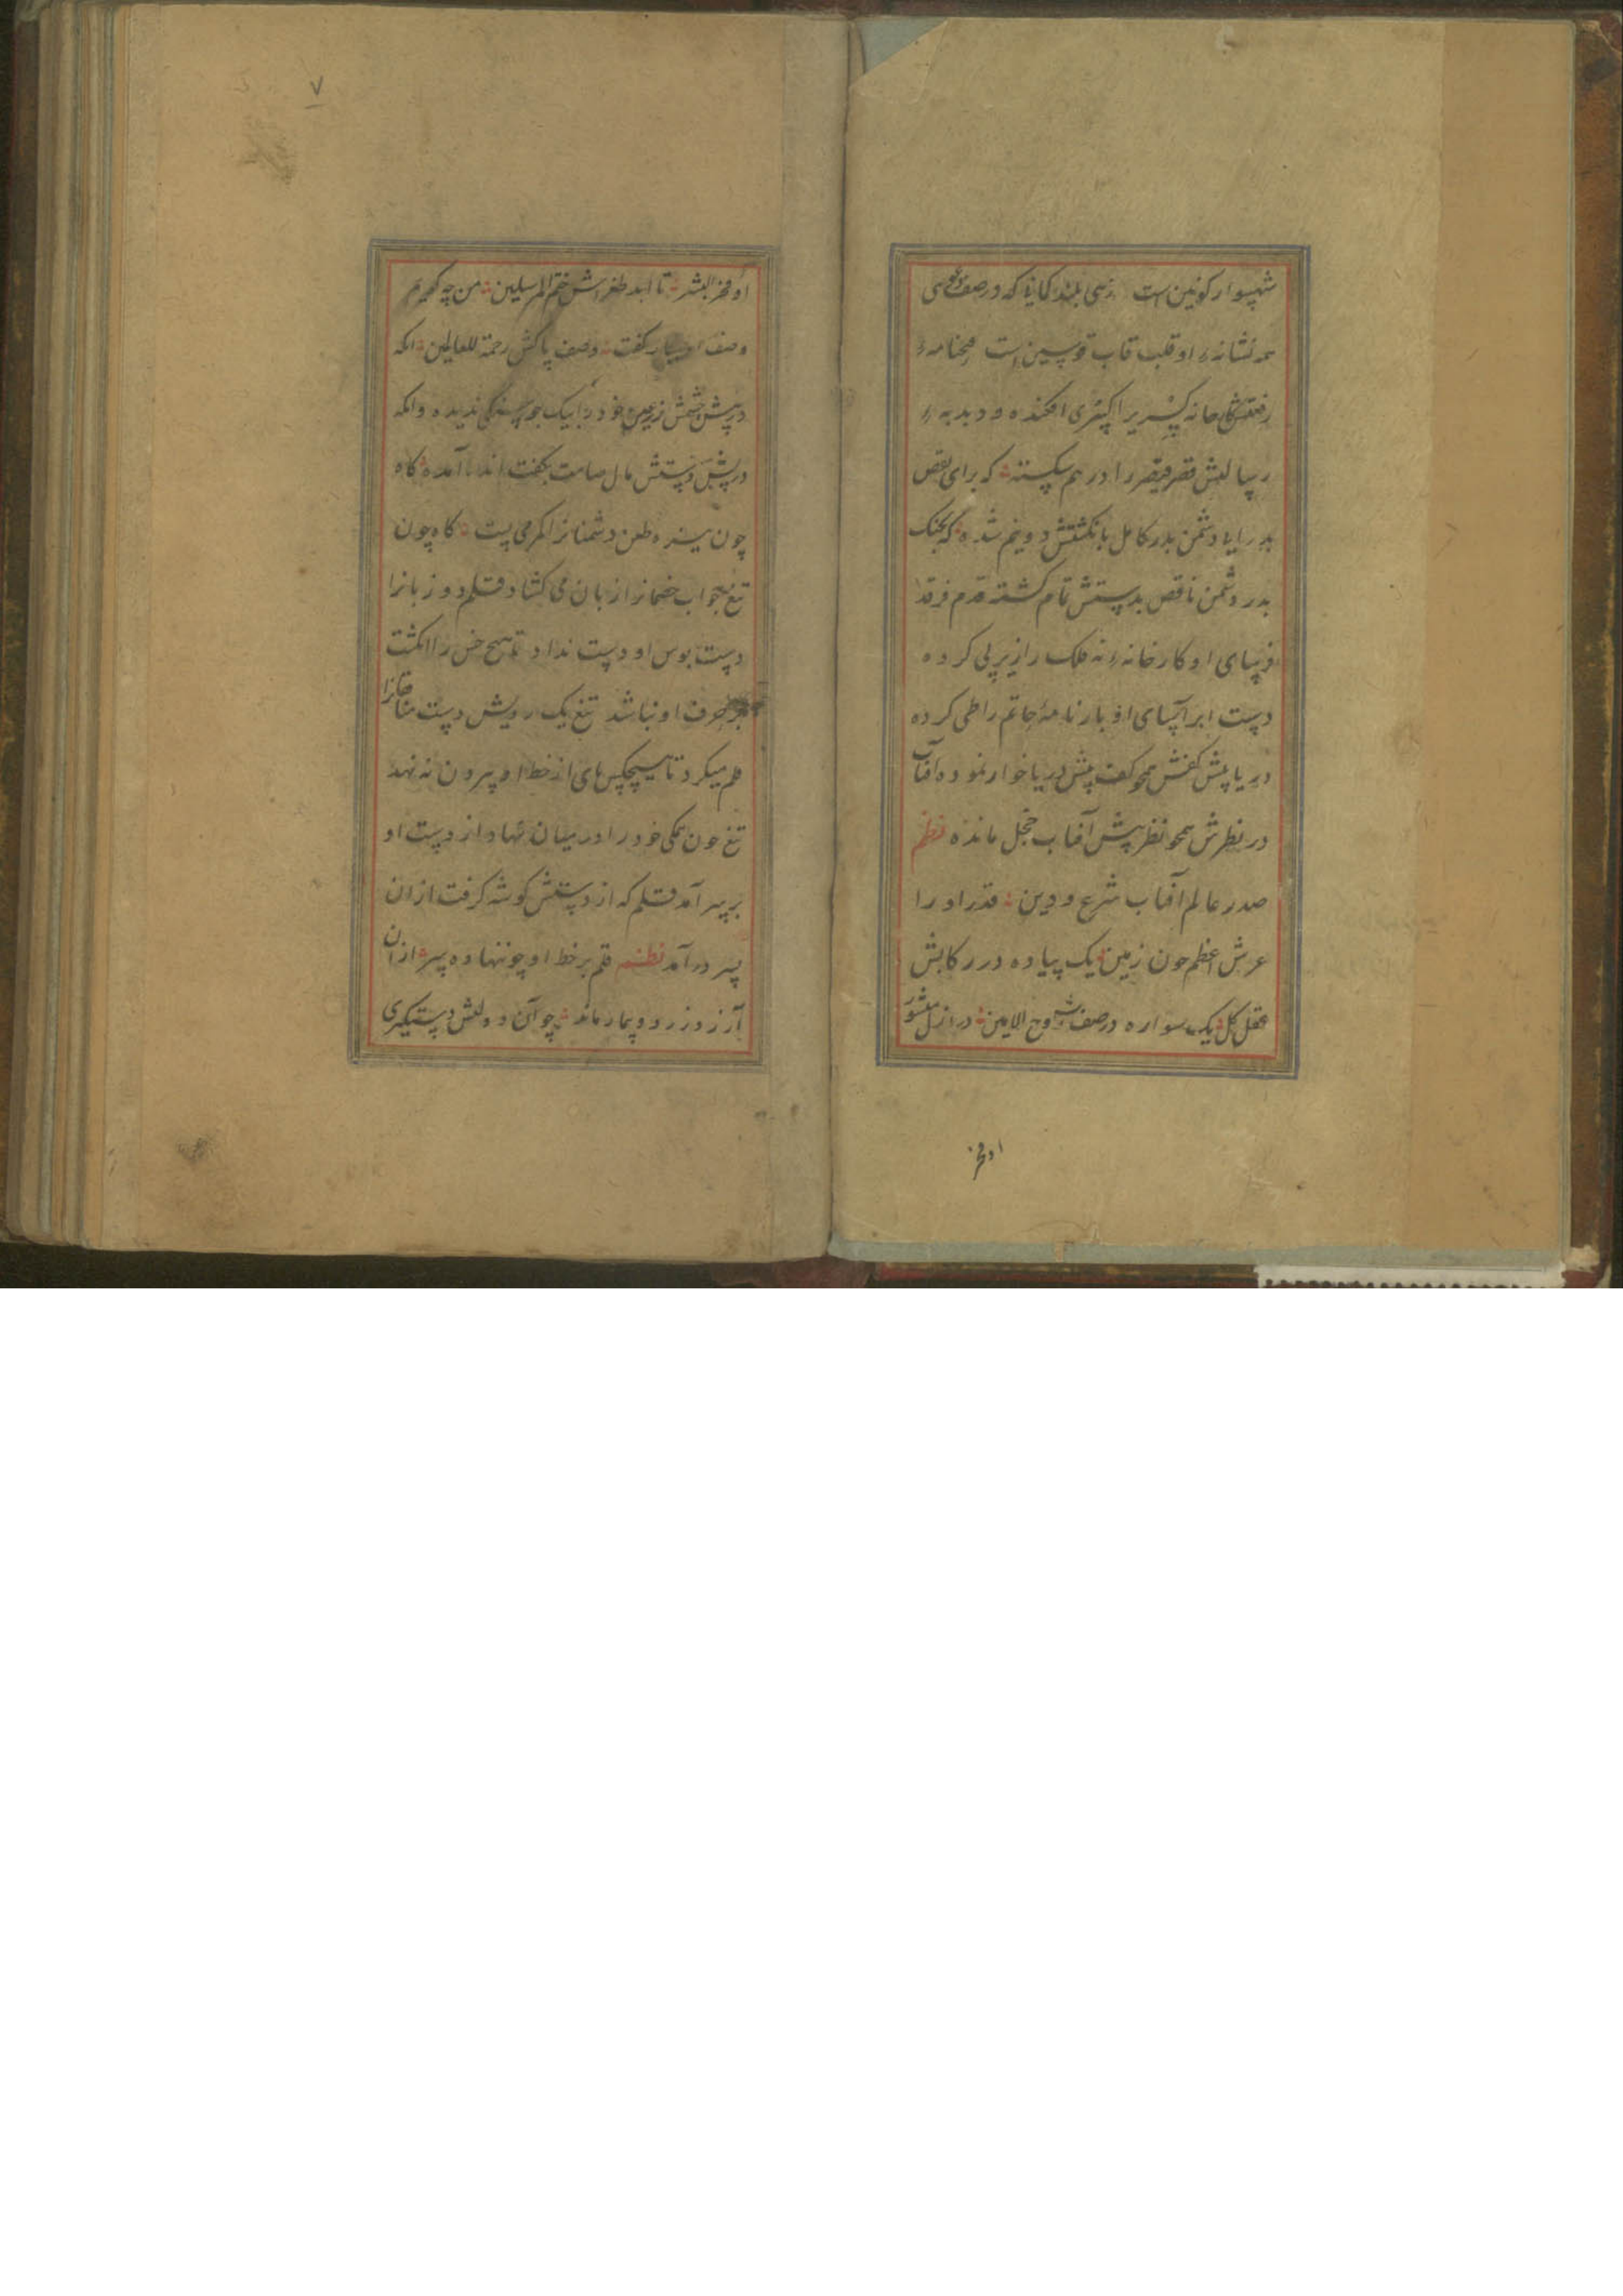 شهسوار کونین است زهی بلند کمانی که در صف دعوی
همه نشانهٔ او قلب قاب قوسین است
خانه کسری را کسری افکنده و دبدبهٔ
رسالتش قصر قیصر را در هم شکسته که برای نقص
بدر رایات دشمن بدر کامل بانکشتش دو نیم شده که بجنک
بدر دشمن ناقص بدستش تمام کشته قدم فرقد
فرسای او کارخانهٔ نه فلک را زیر پی کرده
دست ابر آسای او بارنامهٔ حاتم را طی کرده
دریا پیش کفش همچو کف پیش دریا خوار نموده آفتاب
در نظرش همچو نظر پیش آفتاب خجل مانده نظم
صدر عالم آفتاب شرع و دین قدر او را
عرش اعظم چون زمین یک پیاده در رکابش
عقل کل یک سواره در صفش روح الامین در ازل منشور
او فخر
او فخر البشر تا ابد طغراش ختم المرسلین من چه کویم
وصف او بسیار کفت وصف پاکش رحمة للعالمین انکه
در پیش چشمش زر عین خود را بیک جو سنکی ندیده وانکه
در پیش دستش مال صامت بکفت اندر آمده کاه
چون نیزه طعن دشمنانرا کمر می بست کاه چون
تیغ بجواب خصمانرا زبان می کشاد قلم دو زبانرا
دست بوس او دست نداد تا هیچ خس را انکشت
بر حرف او نباشد تیغ یک رویش دست منافقانرا
قلم میکرد تا هیچکس پای از خط او بیرون نه نهد
تیغ چون همکی خود را در میان نهاد از دست او
بر سر آمد قلم که از دستش کوشه کرفت از ان
بسر در آمد نظم قلم بر خط او چو ننهاده سر از ان
آرزو زرد و بیمار ماند چو آن دولتش دستکیری